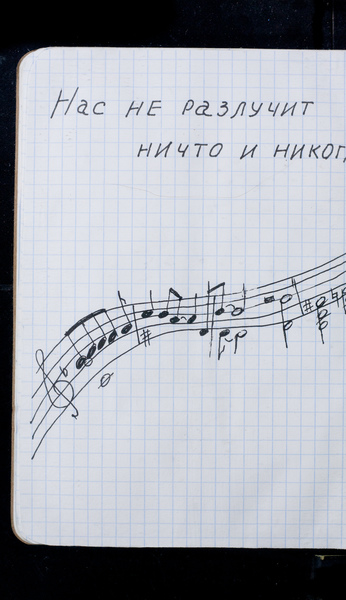 Нас не разлучит
ничто и никог